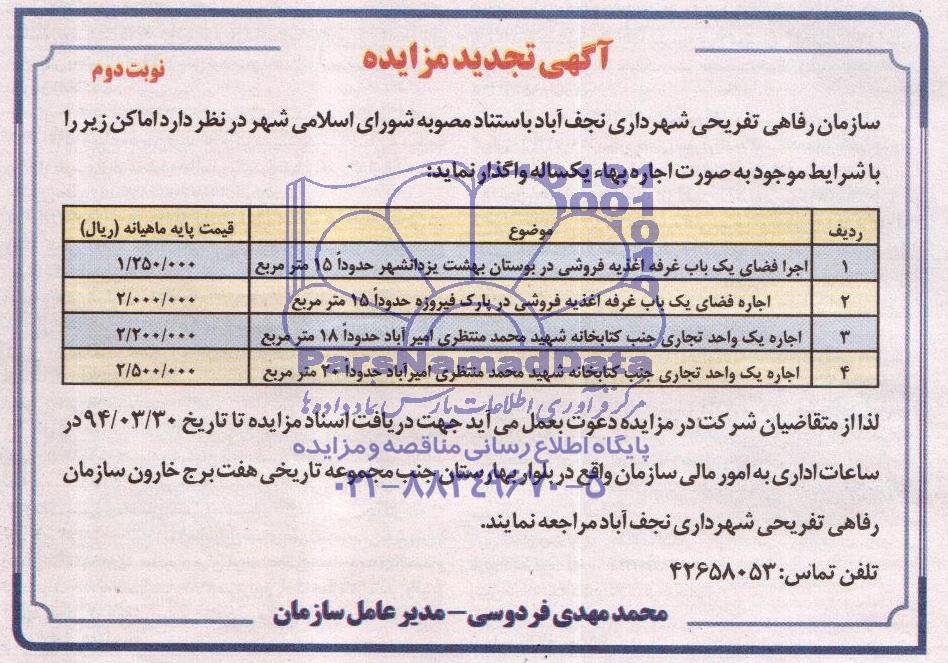 آگهی تجدید مزایده
نوبت دوم
سازمان رفاهی تفریحی شهرداری نجف آباد باستناد مصوبه شورای اسلامی شهر در نظر دارد اماکن زیر را
با شرایط موجود به صورت اجاره بهاء یکساله واگذار نماید:
ردیف موضوع قیمت پایه ماهیانه (ریال)
۱ اجرا فضای یک باب غرفه اغذیه فروشی در بوستان بهشت یزدانشهر حدوداً ۱۵ متر مربع ۱/۲۵۰/۰۰۰
۲ اجاره فضای یک باب غرفه اغذیه فروشی در پارک فیروزه حدوداً ۱۵ متر مربع ۲/۰۰۰/۰۰۰
۳ اجاره یک واحد تجاری جنب کتابخانه شهید محمد منتظری امیر آباد حدوداً ۱۸ متر مربع ۲/۲۰۰/۰۰۰
۴ اجاره یک واحد تجاری جنب کتابخانه شهید محمد منتظری امیرآباد حدوداً ۲۰ متر مربع ۲/۵۰۰/۰۰۰
ParsNamadData
مرکز فرآوری اطلاعات پارس نماد داده ها
لذا از متقاضیان شرکت در مزایده دعوت بعمل می آید جهت دریافت اسناد مزایده تا تاریخ ۹۴/۰۳/۳۰ در
پایگاه اطلاع رسانی مناقصه و مزایده
ساعات اداری به امور مالی سازمان واقع در بلوار بهارستان جنب مجموعه تاریخی هفت برج خارون سازمان
۰۲۱-۸۸۳۴۹۶۷۰-۵
رفاهی تفریحی شهرداری نجف آباد مراجعه نمایند.
تلفن تماس: ۴۲۶۵۸۰۵۳
محمد مهدی فردوسی - مدیر عامل سازمان